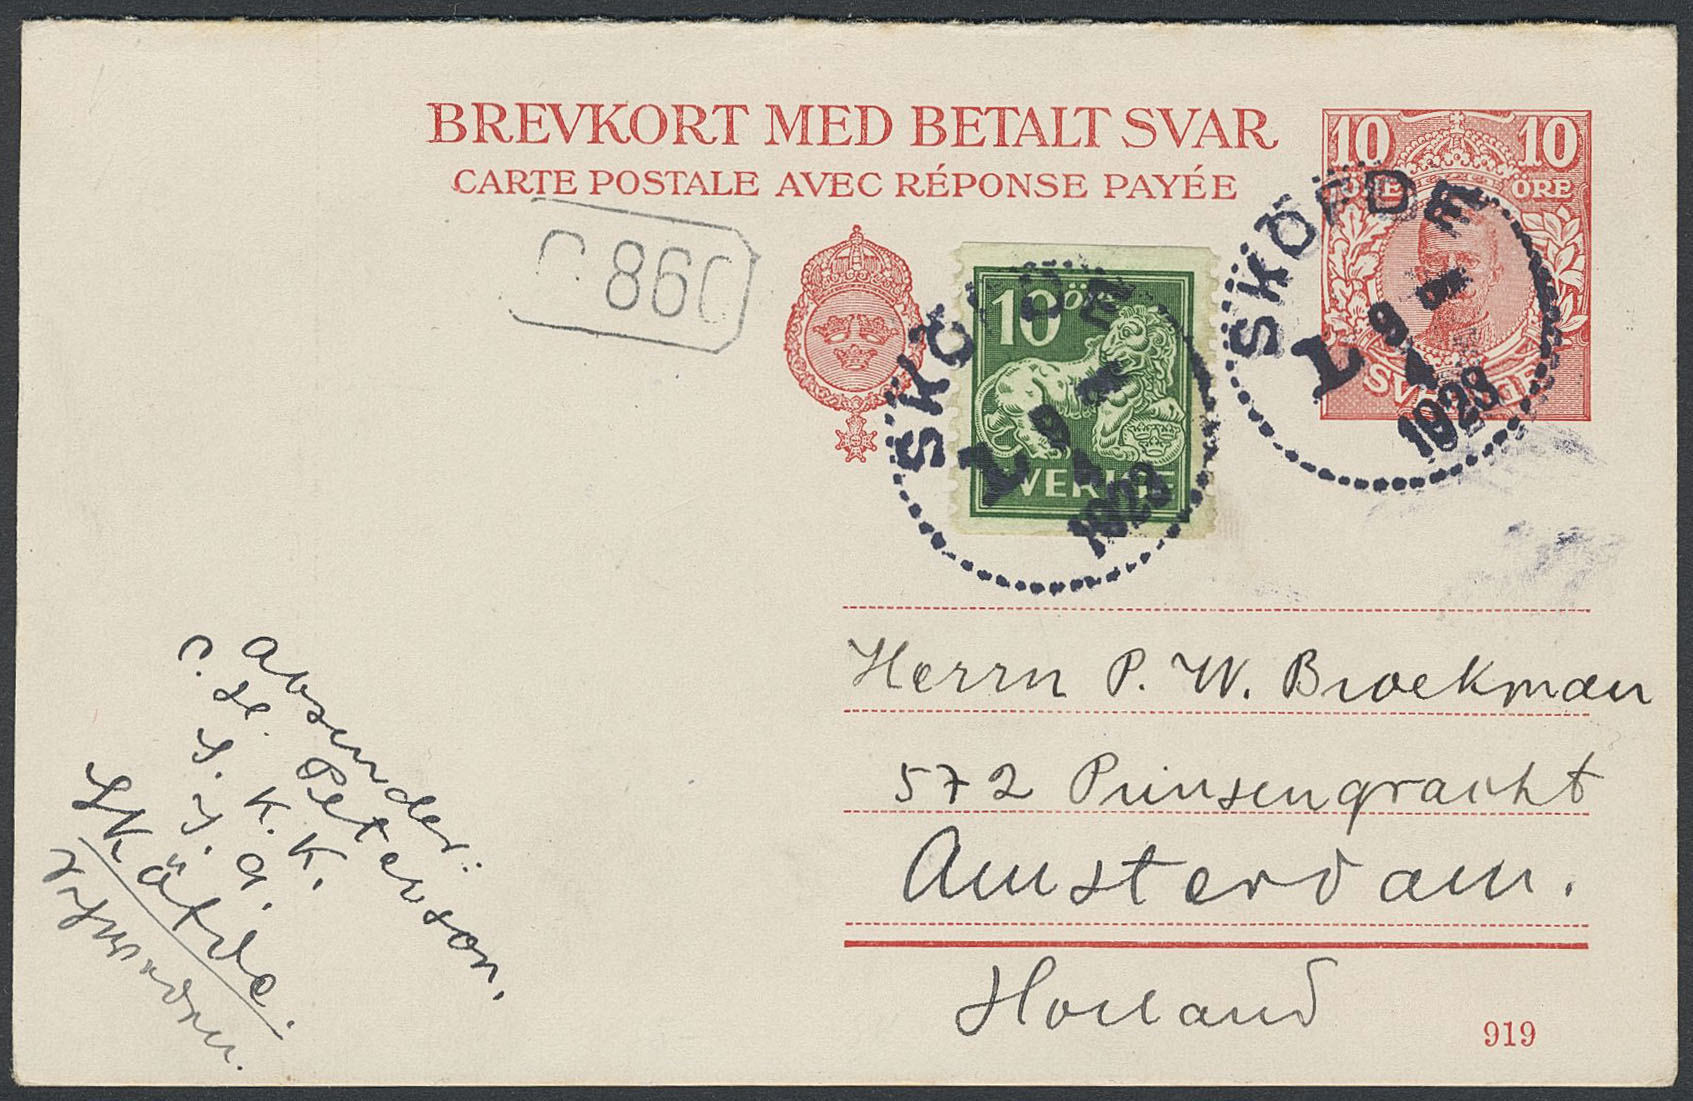 BREVKORT MED BETALT SVAR
CARTE POSTALE AVEC RÉPONSE PAYÉE
10 10
ÖRE ÖRE
SVERIGE
SKÖFDE
L 9
4
1923
860
10 Ö
SVERIGE
SKÖFDE
L 9
4
1923
Herrn P. W. Broekman
572 Prinsengracht
Amsterdam.
Holland
919
Absender:
C. H. Peterson.
S. K. K.
I. 9.
Sköfde.